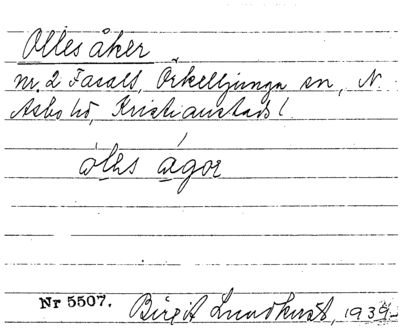 Olles åker
nr. 2 Fasalt, Örkelljunga sn, N.
Asbo hd, Kristianstads l
òles ágor
Nr 5507. Birgit Lundkvist, 1939.